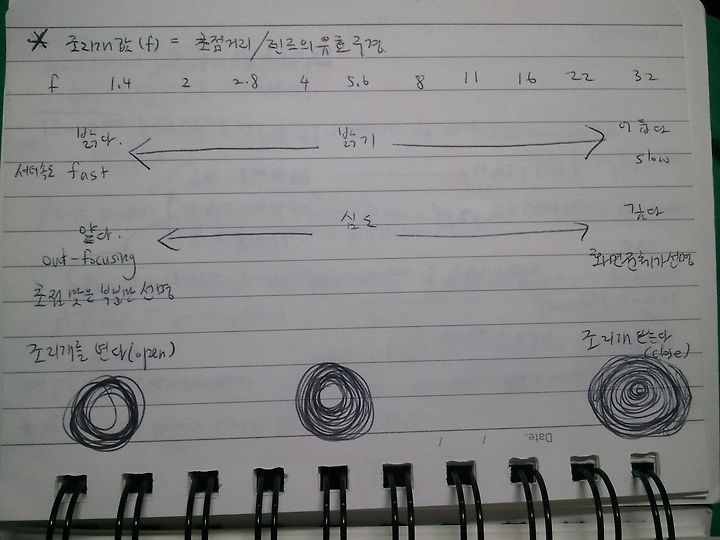 * 조리개 값(f) = 초점거리/렌즈의 유효구경
f 1.4 2 2.8 4 5.6 8 11 16 22 32
밝다. 밝기 어둡다
셔터속도 fast slow
얕다. 심도 깊다
out-focusing 화면전체가 선명
초점 맞은 부분만 선명
조리개를 연다(open) 조리개 닫는다
(close)
Date. / /